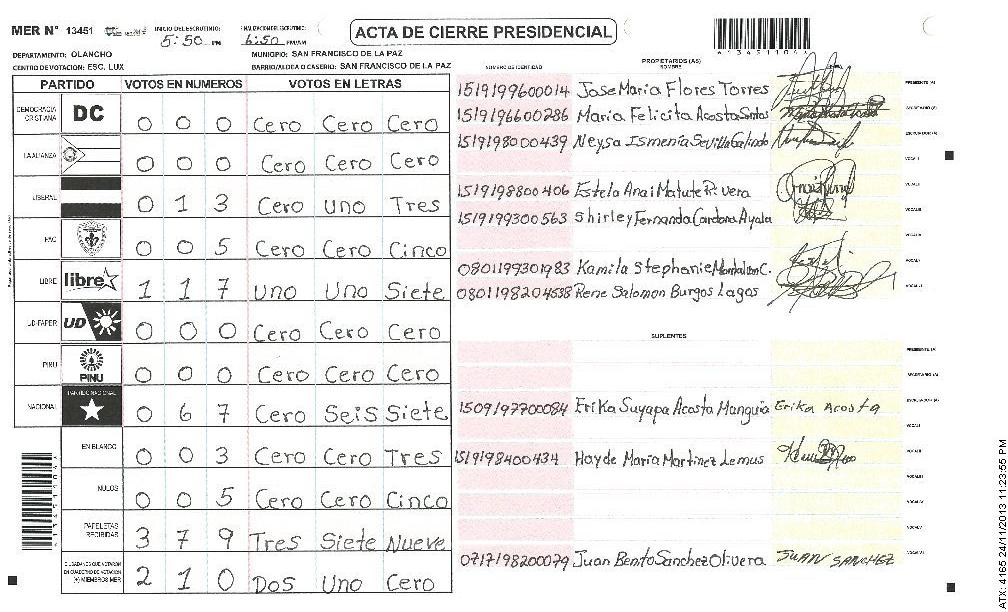 MER N° 13451
INICIO DEL ESCRUTINIO: 5:50 PM
FINALIZACION DEL ESCRUTINIO: 6:50 PM/AM
ACTA DE CIERRE PRESIDENCIAL
DEPARTAMENTO: OLANCHO
MUNICIPIO: SAN FRANCISCO DE LA PAZ
CENTRO DE VOTACION: ESC. LUX
BARRIO/ALDEA O CASERIO: SAN FRANCISCO DE LA PAZ
PARTIDO VOTOS EN NUMEROS VOTOS EN LETRAS
DEMOCRACIA CRISTIANA DC 0 0 0 Cero Cero Cero
LA ALIANZA 0 0 0 Cero Cero Cero
LIBERAL 0 1 3 Cero Uno Tres
PAC 0 0 5 Cero Cero Cinco
LIBRE libre 1 1 7 Uno Uno Siete
UD-FAPER UD 0 0 0 Cero Cero Cero
PINU PINU 0 0 0 Cero Cero Cero
NACIONAL PARTIDO NACIONAL 0 6 7 Cero Seis Siete
EN BLANCO 0 0 3 Cero Cero Tres
NULOS 0 0 5 Cero Cero Cinco
PAPELETAS RECIBIDAS 3 7 9 Tres Siete Nueve
CIUDADANOS QUE VOTARON EN CUADERNO DE VOTACION (+) MIEMBROS MER 2 1 0 Dos Uno Cero
NUMERO DE IDENTIDAD
PROPIETARIOS (AS)
NOMBRE
1519199600014 Jose Maria Flores Torres PRESIDENTE (A)
1519196600286 Maria Felicita Acosta Santos SECRETARIO (A)
1519198000439 Neysa Ismenia Sevilla Galindo ESCRUTADOR (A)
VOCAL I
1519198800406 Estela Anai Matute Rivera VOCAL II
1519199300563 Shirley Fernanda Cardona Ayala VOCAL III
VOCAL IV
0801199301983 Kamila Stephanie Mondalban C. VOCAL V
0801198204638 Rene Salomon Burgos Lagos VOCAL VI
SUPLENTES
PRESIDENTE (A)
SECRETARIO (A)
1509197700084 Erika Suyapa Acosta Manguia Erika Acosta ESCRUTADOR (A)
VOCAL I
1519198400434 Hayde Maria Martinez Lemus VOCAL II
VOCAL III
VOCAL IV
VOCAL V
0717198200079 Juan Benito Sanchez Olivera JUAN SANCHEZ VOCAL VI
ATX: 4165 24/11/2013 11:23:55 PM